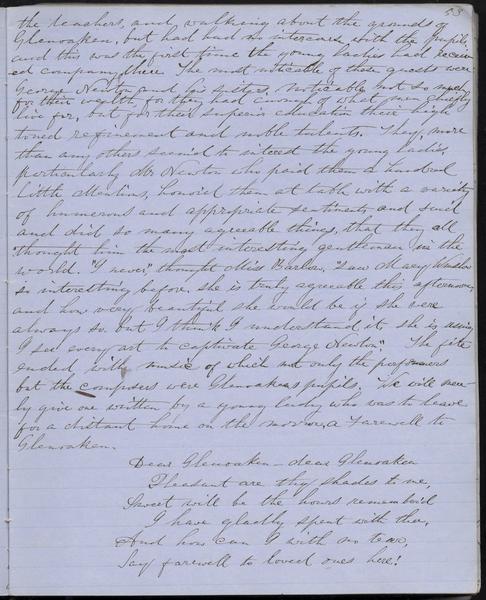 53
the teachers, and walking about the grounds of
Glenoaken, but had had no intercourse with the pupils,
and this was the first time the young ladies had receiv
ed company there. The most noticable of these guests were
George Newton and his sisters, noticable not so much
for their wealth, for they had enough of what men chiefly
live for, but for their superior education their high
toned refinement and noble talents. They, more
than any others seem'd to interest the young ladies,
particularly Mr Newton who paid them a hundred
little attentions, honored them at table with a variety
of humorous and appropriate sentiments and said
and did so many agreeable things, that they all
thought him the most interesting gentleman in the
world. "I never," thought Miss Barlow, "saw Mary Winslow
so interesting before, she is truly agreeable this afternoon,
and how very beautiful she would be if she were
always so. but I think I understand it, she is using
I see every art to captivate George Newton." The fête
ended with music of which not only the performers
but the composers were Glenoakens pupils. We will mere-
ly give one written by a young lady who was to leave
for a distant home on the morrow, a Farewell to
Glenoaken.
Dear Glenoaken – dear Glenoaken
Pleasant are thy shades to me,
Sweet will be the hours remember'd
I have gladly spent with thee,
And how can I with no tear,
Say farewell to loved ones here!